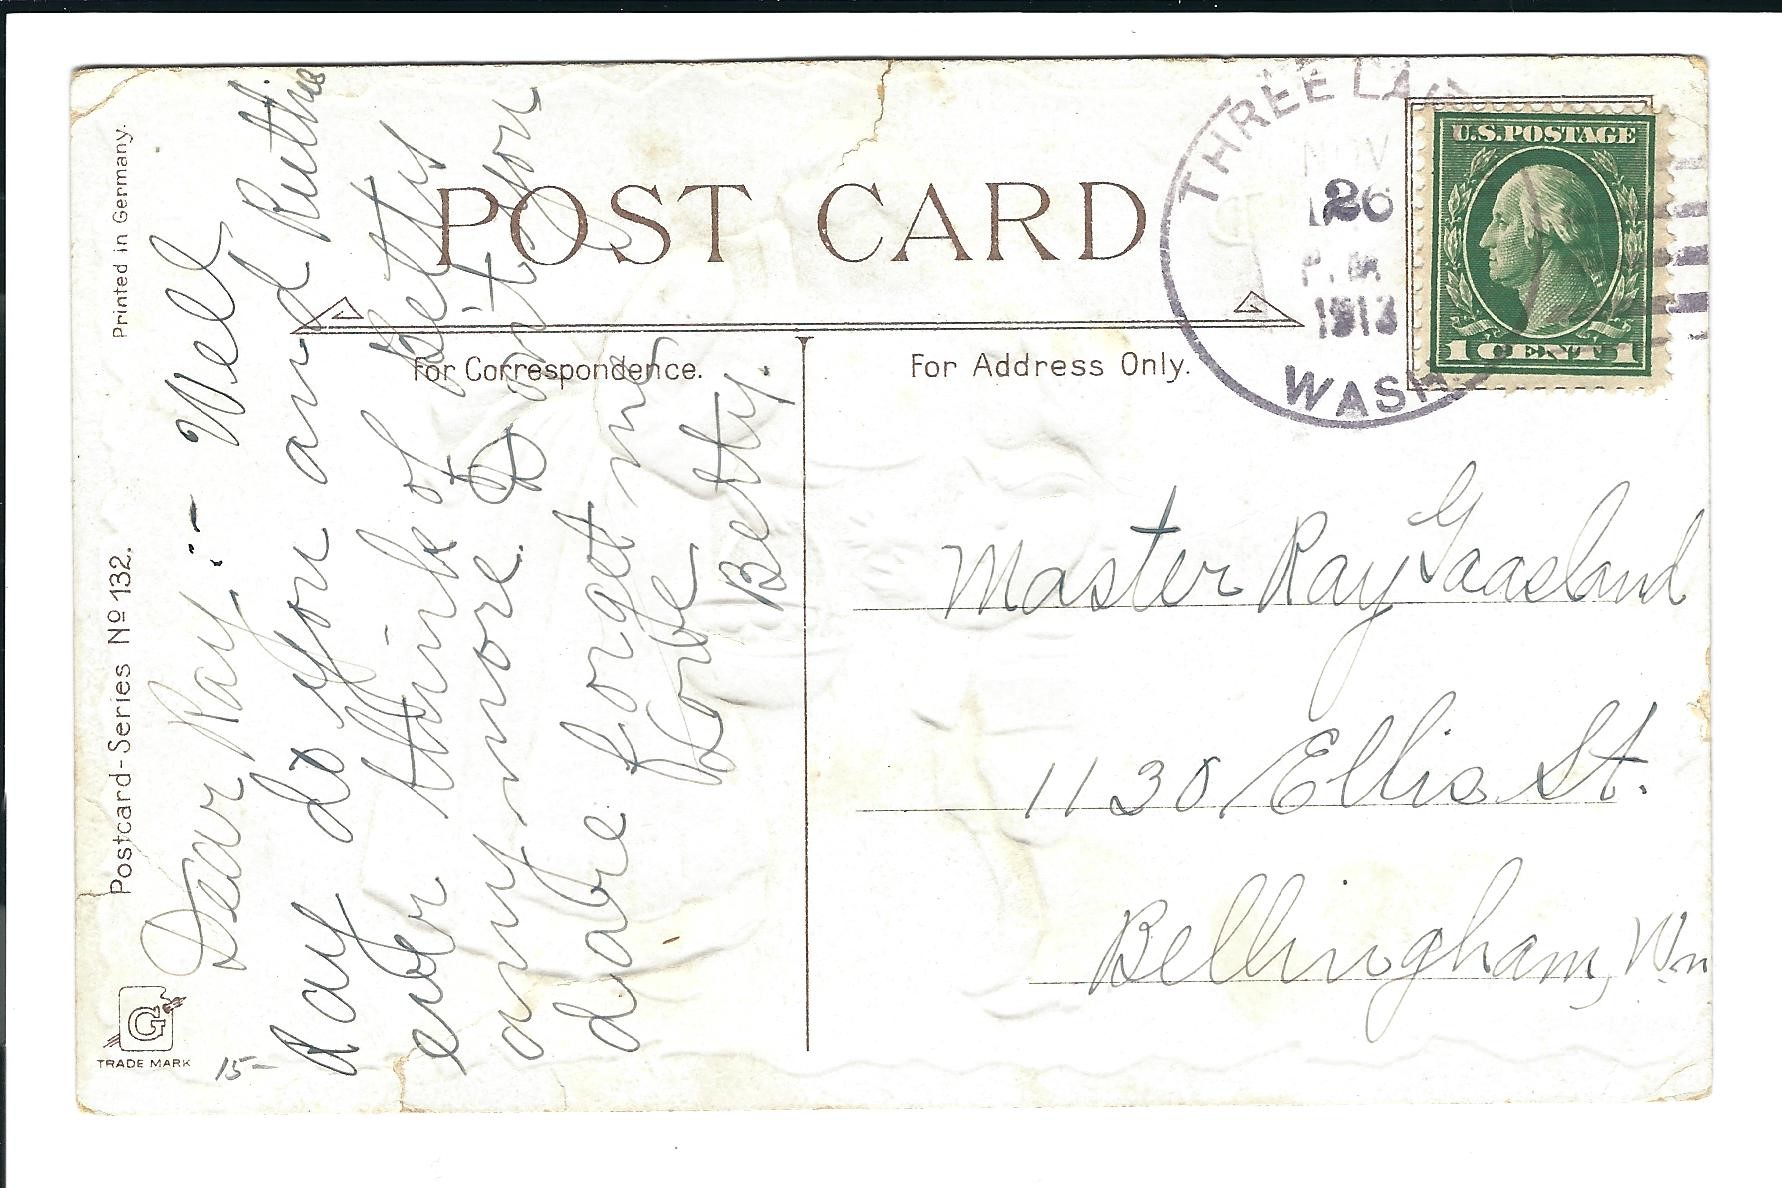 Printed in Germany.
Postcard-Series No 132.
G
TRADE MARK
15-
POST CARD
For Correspondence.
For Address Only.
THREE LA
NOV
26
P.M.
1913
WASH
U.S. POSTAGE
1 CENT 1
Dear Ray :- Well
Ray do you and Ruthie
ever think of Bettys
any more. Don't you
dare forget me
Love
Betty.
Master Ray Gaasland
1130 Ellis St.
Bellingham, Wn